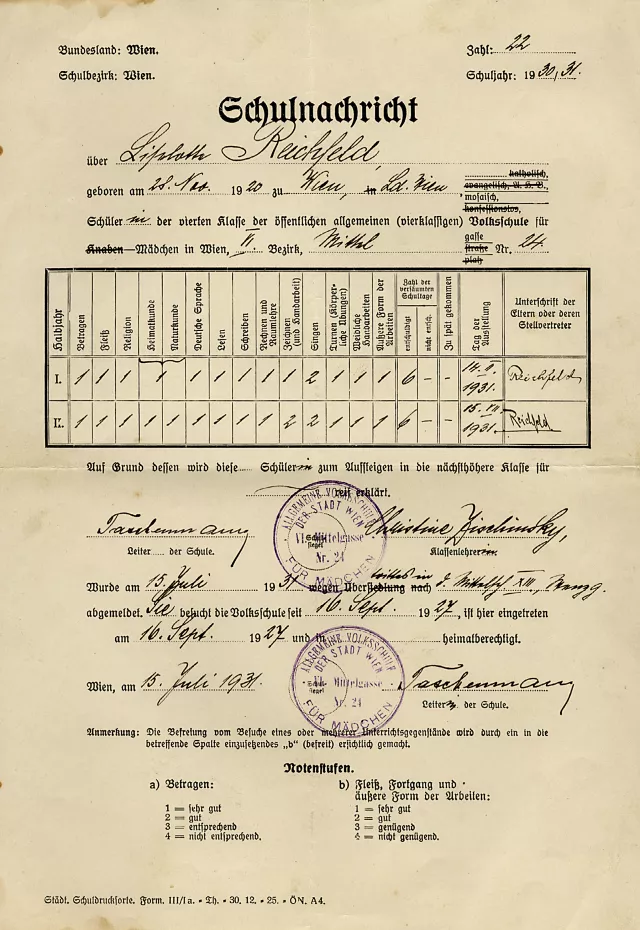 Bundesland: Wien.
Zahl: 22
Schulbezirk: Wien.
Schuljahr: 1930/31.
Schulnachricht
über Liselotte Reichfeld,
katholisch,
evangelisch, A. H. B.,
mosaisch,
konfessionslos,
geboren am 28. Nov. 1920 zu Wien, in Ld. Wien
Schülerin der vierten Klasse der öffentlichen allgemeinen (vierklassigen) Volksschule für
Knaben—Mädchen in Wien, Bezirk, Mittel
gasse
straße
platz
Nr. 24
Halbjahr
Betragen
Fleiß
Religion
Heimatkunde
Naturkunde
Deutsche Sprache
Lesen
Schreiben
Rechnen und Raumlehre
Zeichnen (und Handarbeit)
Singen
Turnen (Körperliche Übungen)
Weibliche Handarbeiten
Äußere Form der Arbeiten
Zahl der versäumten Schultage
entschuldigt
nicht entsch.
Zu spät gekommen
Tag der Ausstellung
Unterschrift der Eltern oder deren Stellvertreter
I. 1 1 1 1 1 1 1 1 1 2 1 1 1 6 – – 14. II. 1931. Reichfeld
II. 1 1 1 1 1 1 1 1 1 2 2 1 1 1 6 – – 15. VII. 1931. Reichfeld
Auf Grund dessen wird diese Schülerin zum Aufsteigen in die nächsthöhere Klasse für
reif erklärt.
Christine
Leiter der Schule.
Klassenlehrerin.
ALLGEMEINE VOLKSSCHULE
DER STADT WIEN
VI. Mittelgasse
Nr. 24
FÜR MÄDCHEN
Schulsiegel
Wurde am 15. Juli 1931 wegen Übersiedlung nach
abgemeldet. Sie besucht die Volksschule seit 16. Sept. 1927, ist hier eingetreten
am 16. Sept. 1927 und in heimatberechtigt.
ALLGEMEINE VOLKSSCHULE
DER STADT WIEN
VI. Mittelgasse
Nr. 24
FÜR MÄDCHEN
Wien, am 15. Juli 1931.
Leiter der Schule.
Anmerkung: Die Befreiung vom Besuche eines oder mehrerer Unterrichtsgegenstände wird durch ein in die
betreffende Spalte einzusetzendes „b“ (befreit) ersichtlich gemacht.
Notenstufen.
a) Betragen:
1 = sehr gut
2 = gut
3 = entsprechend
4 = nicht entsprechend.
b) Fleiß, Fortgang und
äußere Form der Arbeiten:
1 = sehr gut
2 = gut
3 = genügend
4 = nicht genügend.
Städt. Schuldrucksorte. Form. III/1 a. - Th. - 30. 12. - 25. - ÖN. A4.